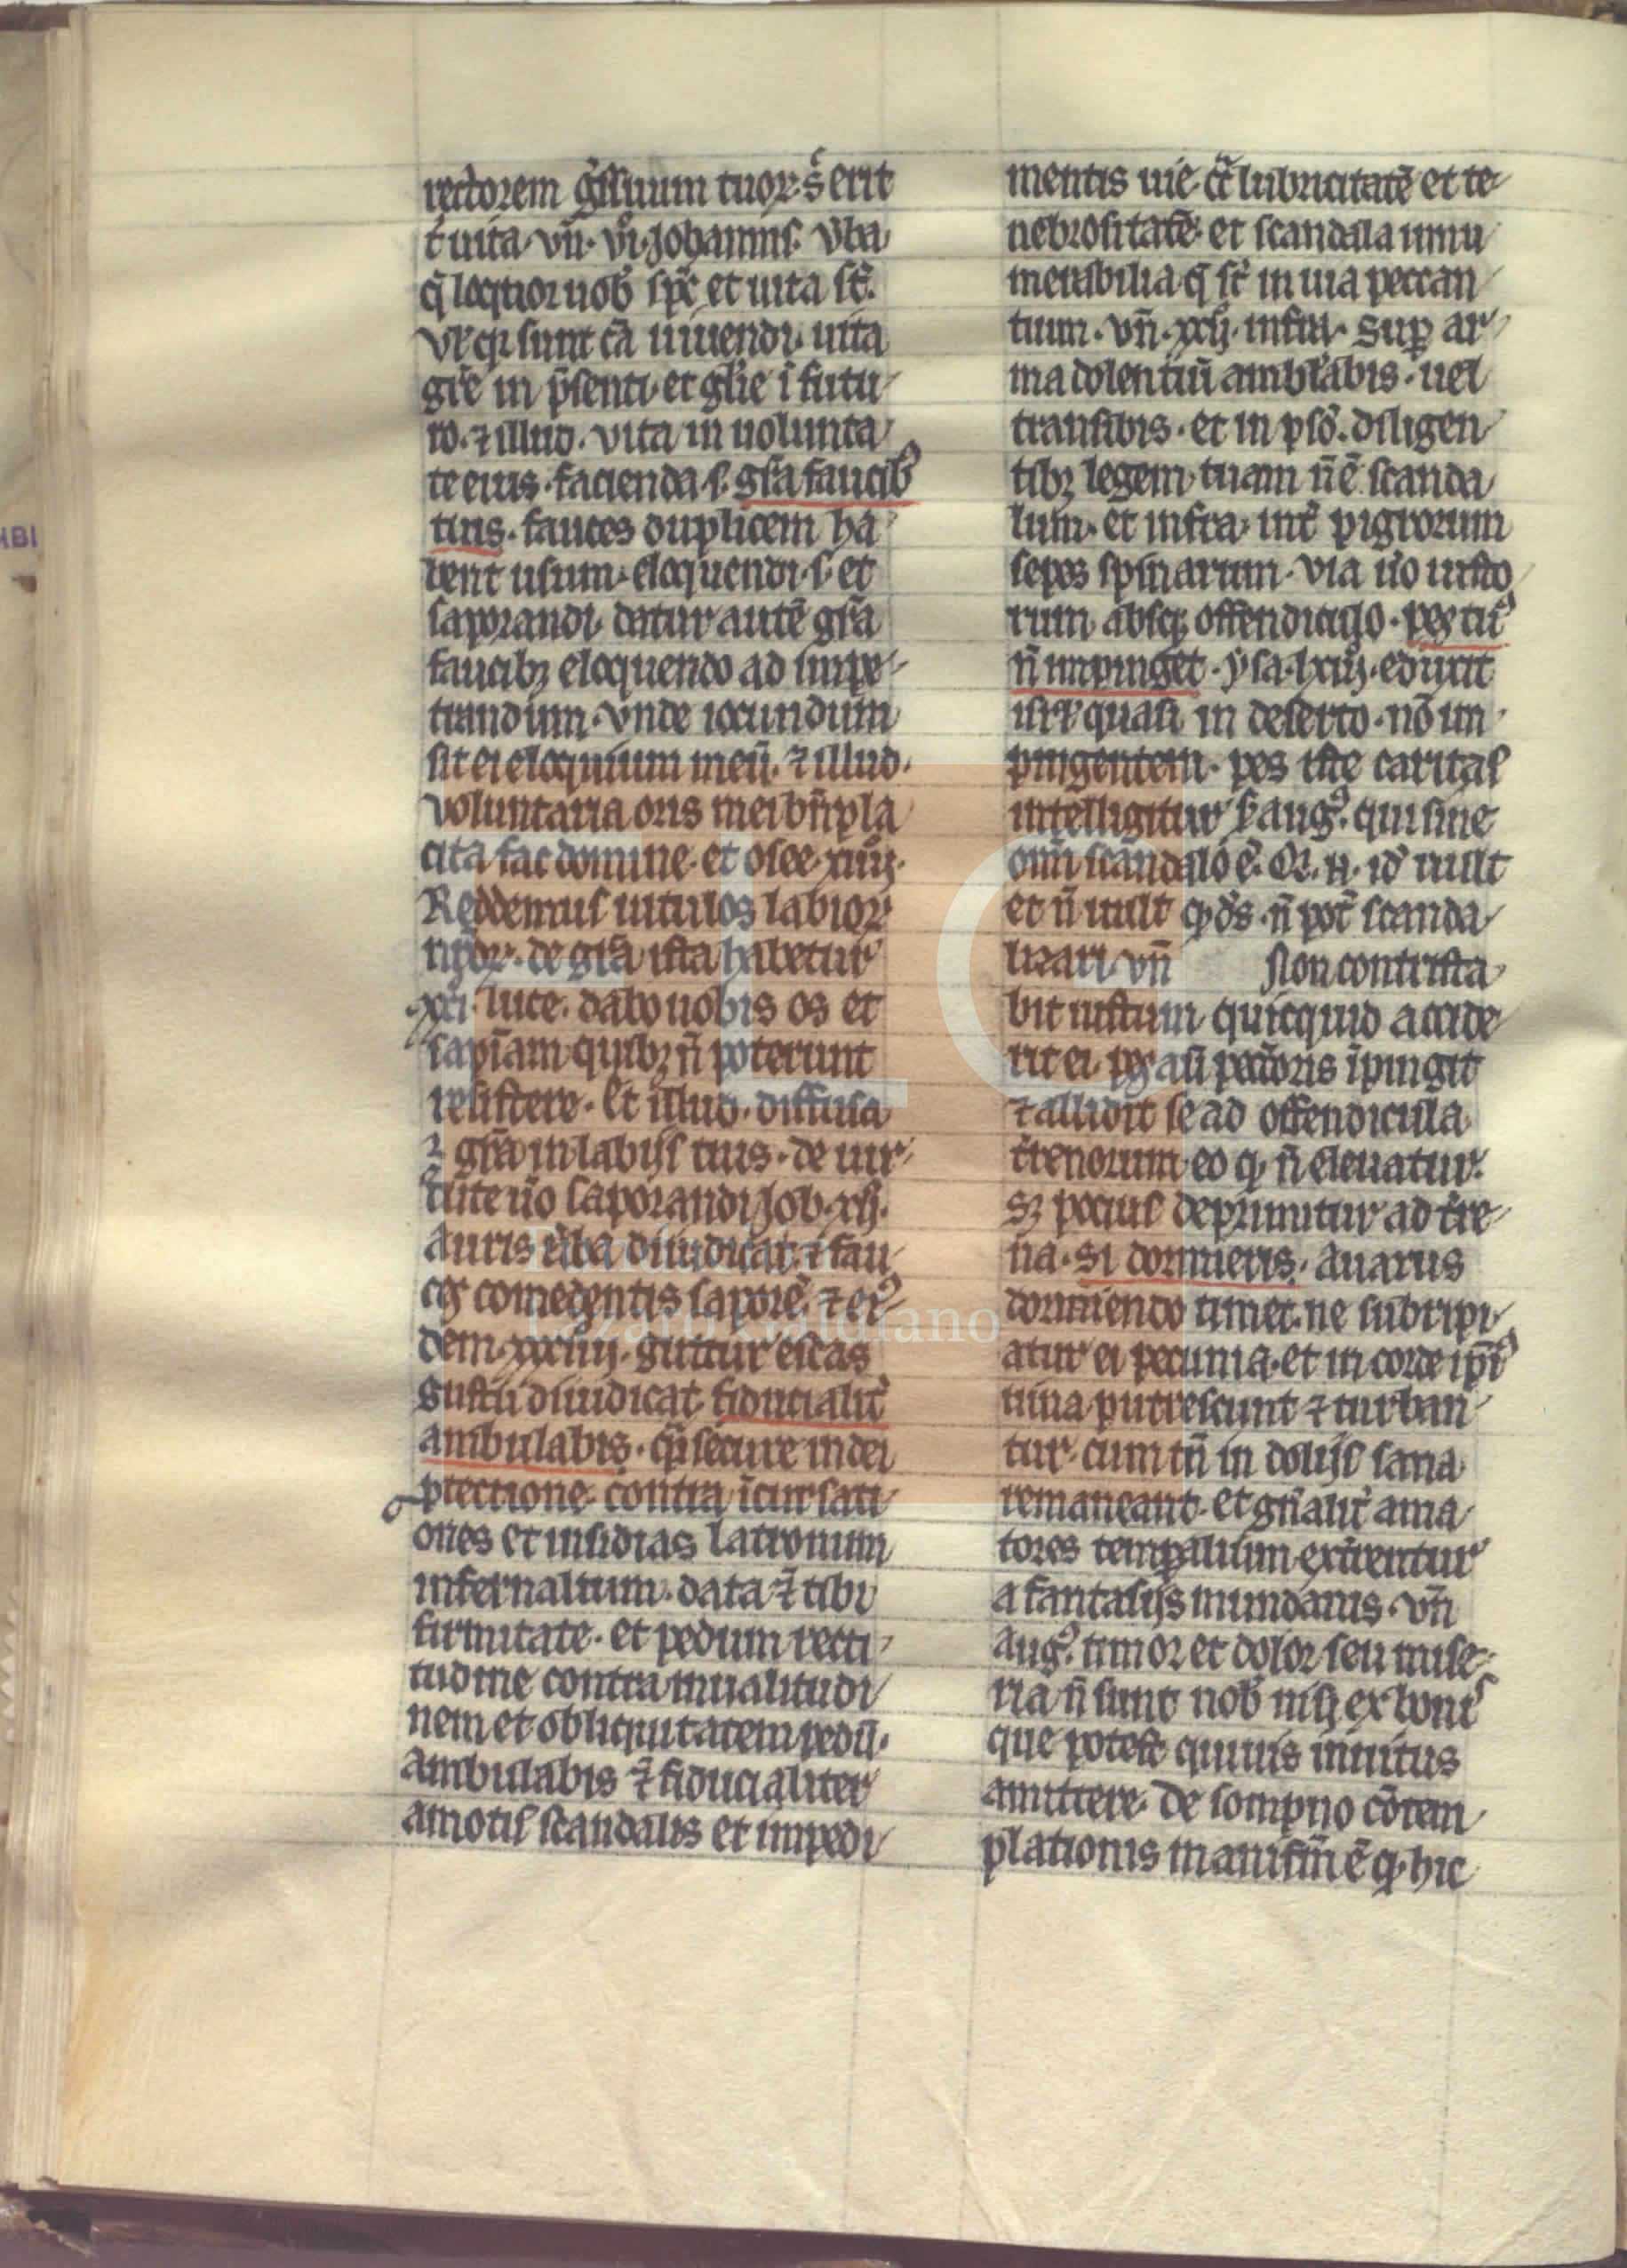 rectorem gͥssuum tuoꝝ· sͥ erit
t̾ uita· vn̄· vi· Johannis· v̾ba
q̄ loqͥor uob̾ spc̄ et uita st̄·
Vl̾ qꝛ sunt cā uiuendi· uita
gr̄e in p̄senti· et gl̄ie ī futu
ro· ⁊ illud· vita in uolunta
te eius· facienda s̾· gr̄a faucib̾
tuis· fauces duplicem ha
bent usum· eloquendi· s̾· et
saporandi· datur autē gr̄a
faucibꝫ eloquendo ad impe
trandum· vnde iocundum
sit ei eloquium meū· ⁊ illud·
Voluntaria oris mei bn̄pla
cita fac domine· et osee· xiiij·
Reddemus uitulos labioꝝ
nr̄oꝝ· de gr̄a ista habetur
xxi· luce· dabo uobis os et
sapīam quibꝫ n̄ poterunt
resistere· Et illud· diffusa
⁊ gr̄a in labijs tuis· de uir
tute u̾o saporandi Job· xij·
Auris u̾ba diiudicat· ⁊ fau
ces comedentis saporē· ⁊ eiꝰ
dem· xxxiiij· guttur escas
gustu diiudicat fiducialit̾
ambulabis· qͥ secure in dei
ꝓtectione contra īcursati
ones et insidias latronum
infernalium· data ē tibi
firmitate· et pedum recti
tudine contra inualitudi
nem et obliquitatem pedū·
Ambulabis ⁊ fiducialiter
amotis scandalis et impedi
mentis uie· cͣ lubricitatē et te
nebrositatē· et scandala innu
merabilia q̄ st̄ in uia peccan
tium· vn̄· xxij· infra· Sup̱ ar
ma dolentiū amb̾labis· uel
transibis· et in pso̾· diligen
tibꝫ legem tuam n̄ ē scanda
lum· et infra· int̾ pigrorum
sepes spinarum· via u̾o iusto
rum absqꝫ offendiculo· pes tuꝰ
n̄ impinget· ysa· lxiij· eduxit
isrl̾ quasi in deserto· nō im
pingentem· pes iste caritas
intelligitur s̾ augꝰ· qui sine
om̄i scandalo ē· Qꝛ· n̄· id̾ uult
et n̄ uult qͩ ds̄· n̄ pot̄ scanda
lizari· vn̄ Non contrista
bit iustum quicquid accide
rit ei· pes aū peccͣoris īpingit
⁊ allidit se ad offendicula
t̾renorum eo qͩ n̄ eleuatur·
sꝫ pocius deprimitur ad t̾re
na· Si dormieris· Auarus
dormiendo timet· ne subripi
atur ei pecunia· et in corde ip̄iꝰ
uina putrescunt ⁊ turban
tur· cum tn̄ in dolijs sana
remaneant· et gn̄alit̾ ama
tores temp̱alium ext̾rentur
a fantasijs mundanis· vn̄
augꝰ· timor et dolor seu mise
ria n̄ sunt nob̾ nisi ex bonis
que potest quiuis inuitus
amittere· De sompno cōtem
plationis manifm̄ ē qͩ· hic